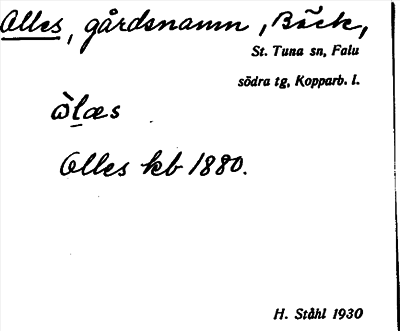 Olles, gårdsnamn, Bäck,
St. Tuna sn, Falu
södra tg, Kopparb. l.
ὼl̲æs
Olles kb 1880.
H. Ståhl 1930